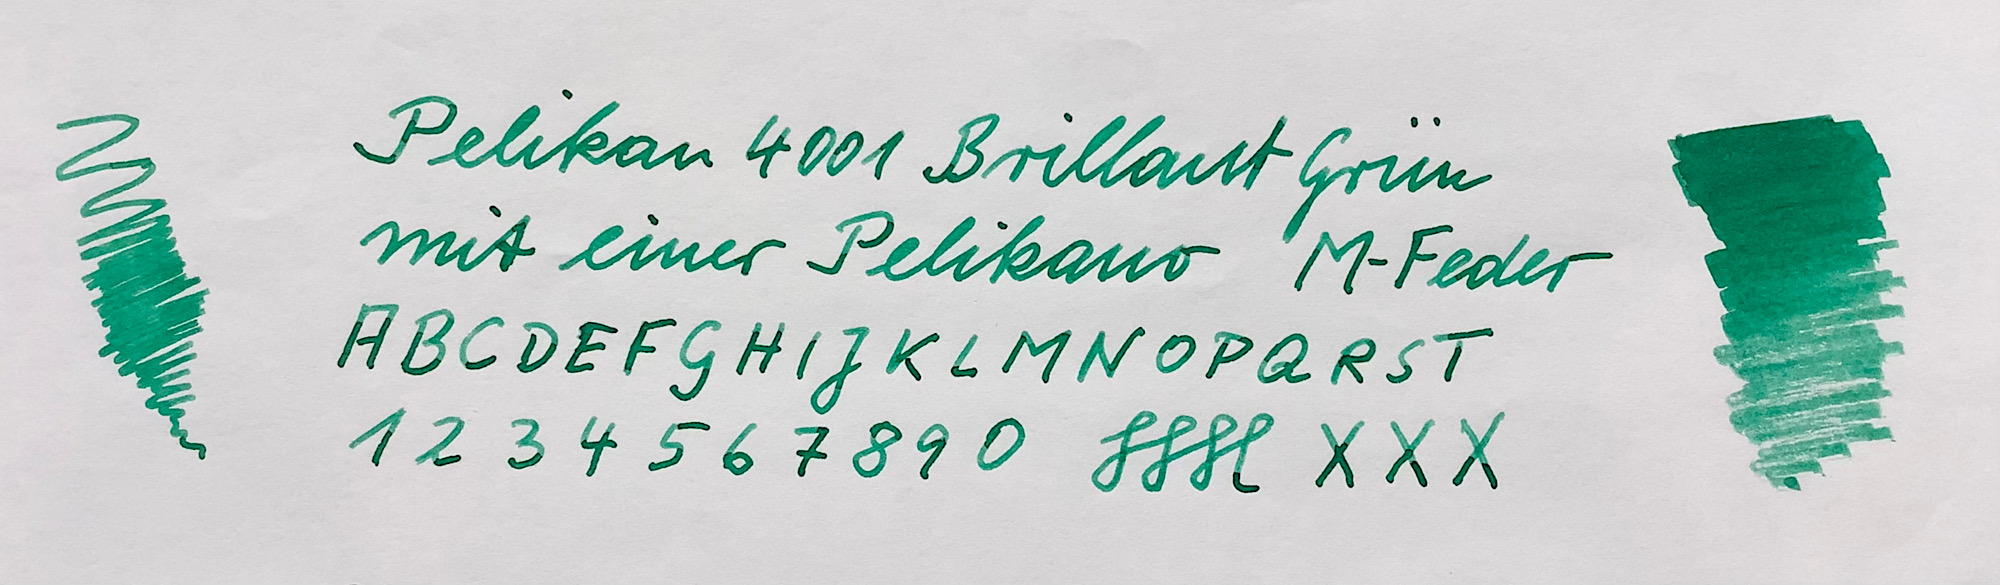 Pelikan 4001 Brillant Grün
mit einer Pelikano M-Feder
A B C D E F G H I J K L M N O P Q R S T
1 2 3 4 5 6 7 8 9 0 X X X